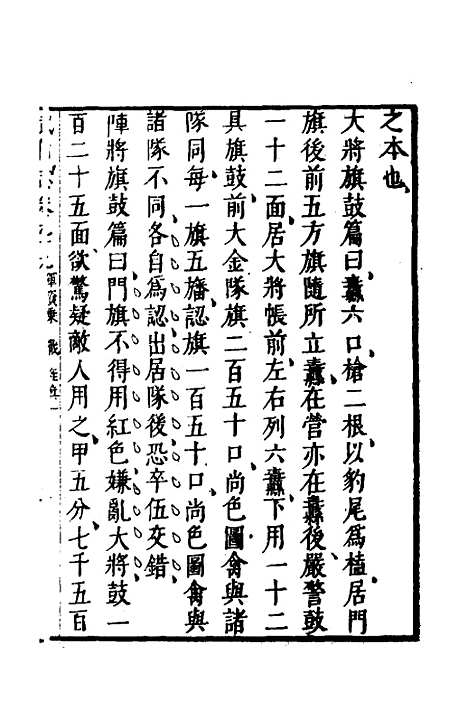 之本也
大將旗鼓篇曰纛六口槍二根以豹尾爲榼居門
旗後前五方旗隨所立纛在營亦在纛後嚴警鼓
一十二面居大將帳前左右列六纛下用一十二
具旗鼓前大金隊旗二百五十口尚色圖禽與諸
隊同每一旗五旛認旗一百五十口尚色圖禽與
諸隊不同各自爲認出居隊後恐卒伍交錯
陣將旗鼓篇曰門旗不得用紅色嫌亂大將鼓一
百二十五面欲驚疑敵人用之甲五分七千五百
軍資乘